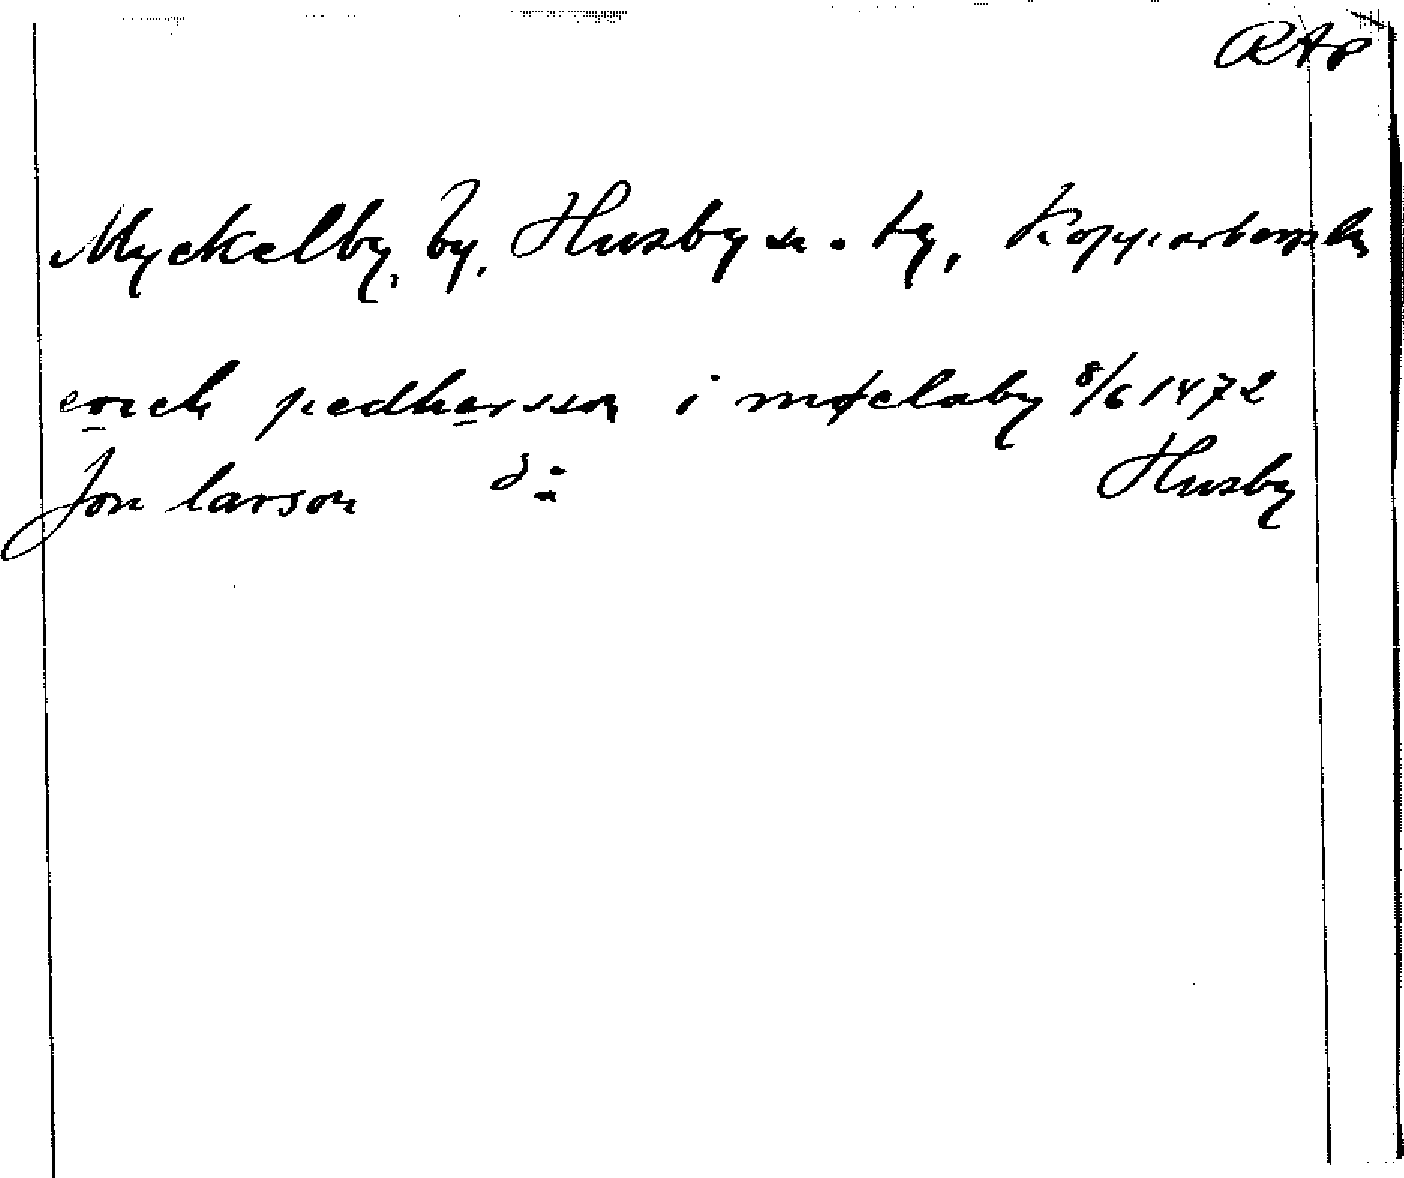 RAp
Myckelby, by, Husby sn. ty, Kopparbergs l.
erich pedhersson i møclaby 8/6 1472
Jon larson d:o Husby